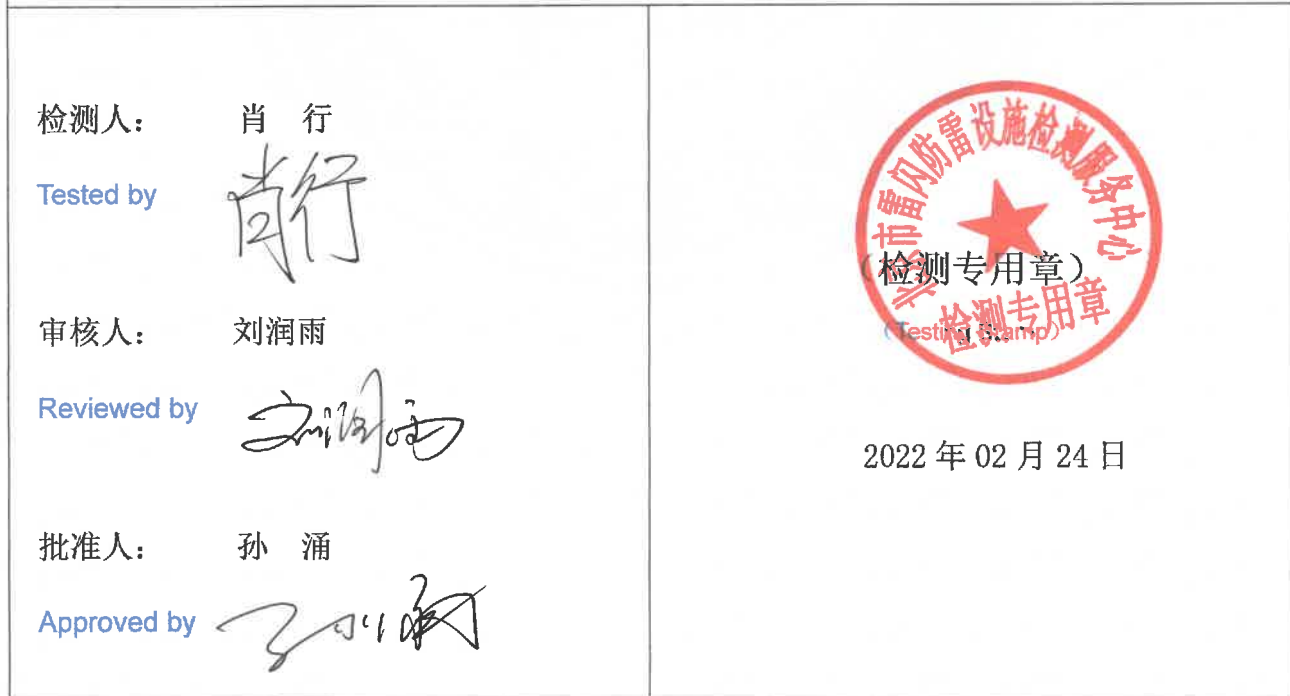 检测人： 肖 行
Tested by
肖行
审核人： 刘润雨
Reviewed by
刘润雨
批准人： 孙 涌
Approved by
孙涌
北京市雷闪防雷设施检测服务中心
（检测专用章）
检测专用章
（Testing Stamp）
2022 年 02 月 24 日